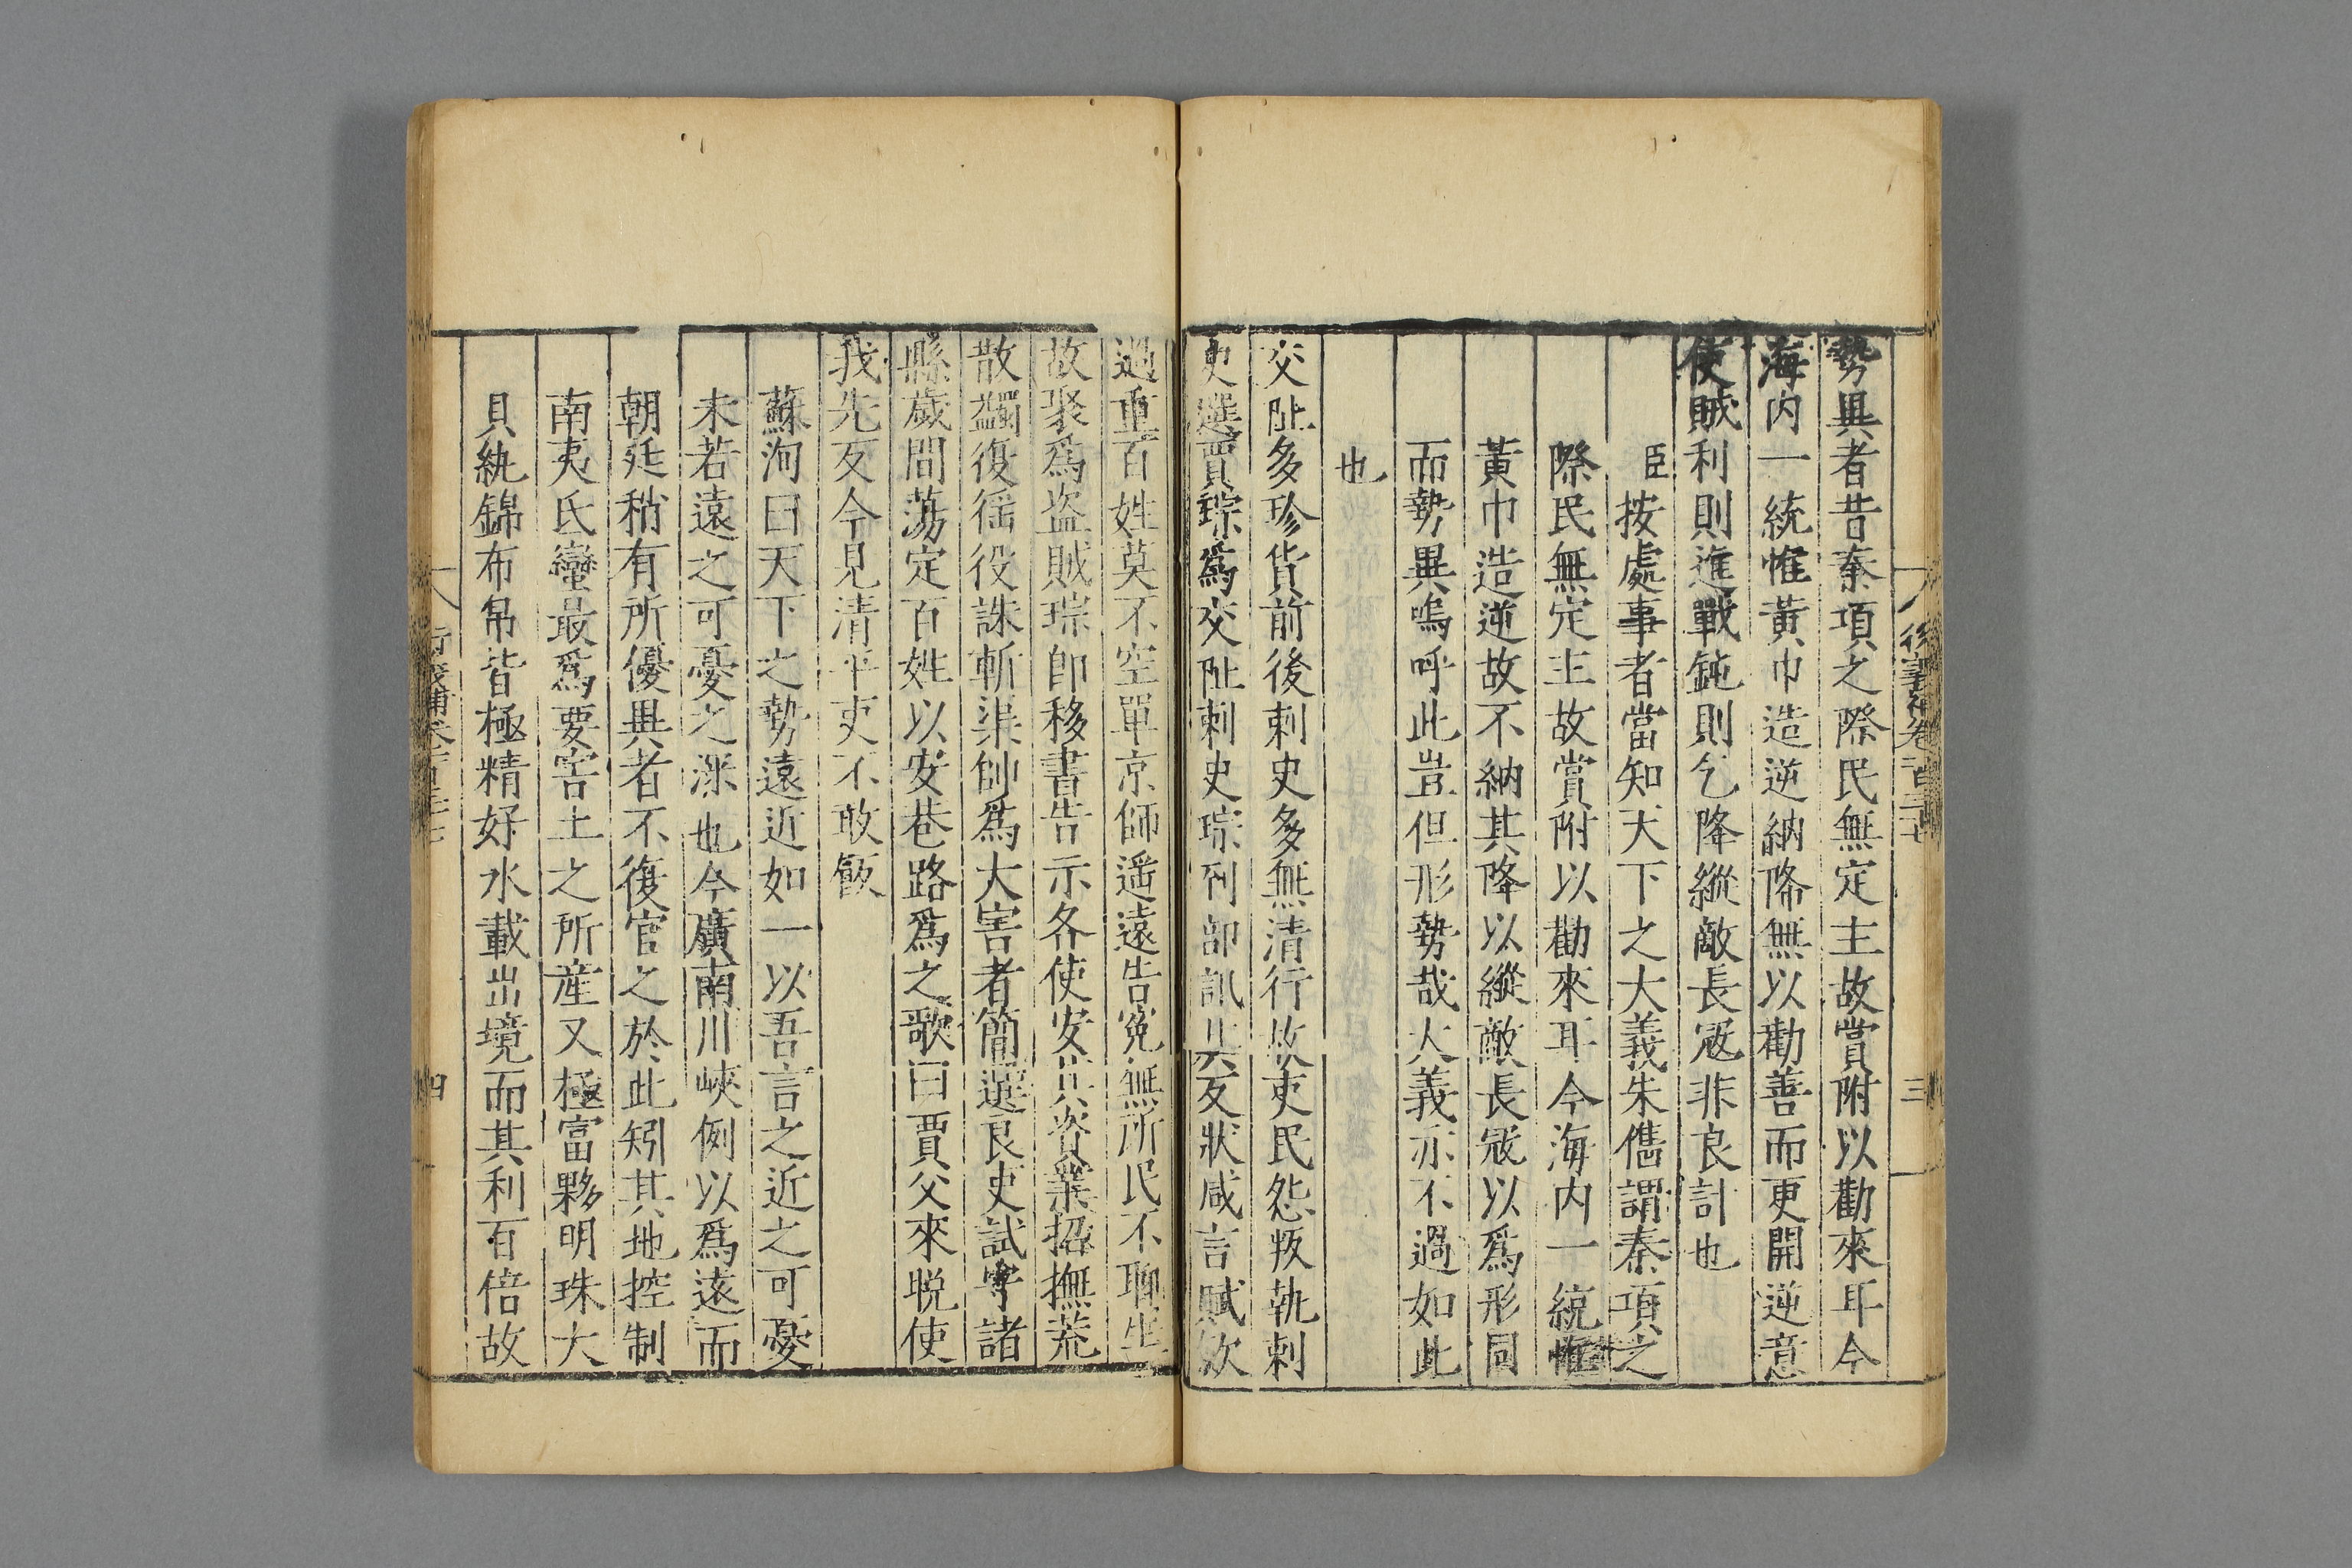 後義補卷一百三十七
三
勢異者昔秦項之際民無定主故賞附以勸來耳今
海內一統惟黃巾造逆納降無以勸善而更開逆意
使賊利則進戰鈍則乞降縱敵長冦非良計也
臣按處事者當知天下之大義朱儁謂秦項之
際民無定主故賞附以勸來耳今海內一統惟
黃巾造逆故不納其降以縱敵長冦以爲形同
而勢異嗚呼此豈但形勢哉大義亦不過如此
也
交阯多珍貨前後刺史多無清行故吏民怨叛執刺
史選賈琮爲交阯刺史琮到部訊其反狀咸言賦斂
過重百姓莫不空單京師遥遠告寃無所民不聊生
故聚爲盜賊琮即移書告示各使安其資業招撫荒
散蠲復徭役誅斬渠帥爲大害者簡選良吏試守諸
縣歲間蕩定百姓以安巷路爲之歌曰賈父來晚使
我先反今見清平吏不敢飯
蘇洵曰天下之勢遠近如一以吾言之近之可憂
未若遠之可憂之深也今廣南川峽例以爲遠而
朝廷稍有所優異者不復官之於此矧其地控制
南夷氐蠻最爲要害土之所産又極富夥明珠大
貝紈錦布帛皆極精好水載出境而其利百倍故
四